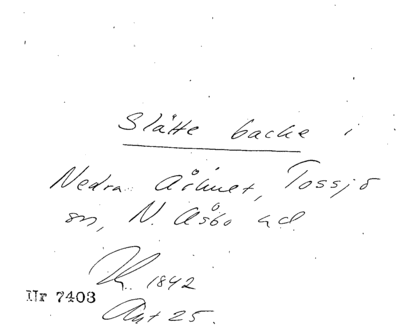 Slätte backe i
Nedra Århult, Tossjö
sn, N. Åsbo hd.
1842
Nr 7403
Akt 25.